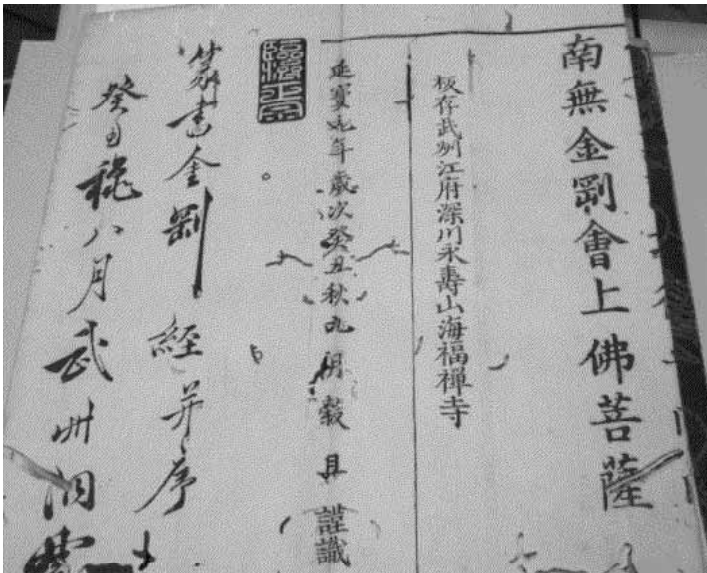 南無金剛會上佛菩薩
板存武州江府深川永壽山海福禪寺
延寶元年歲次癸丑秋九月穀旦謹識
臨濟正宗
篆書金剛經并序
癸丑穐八月武州洞雲